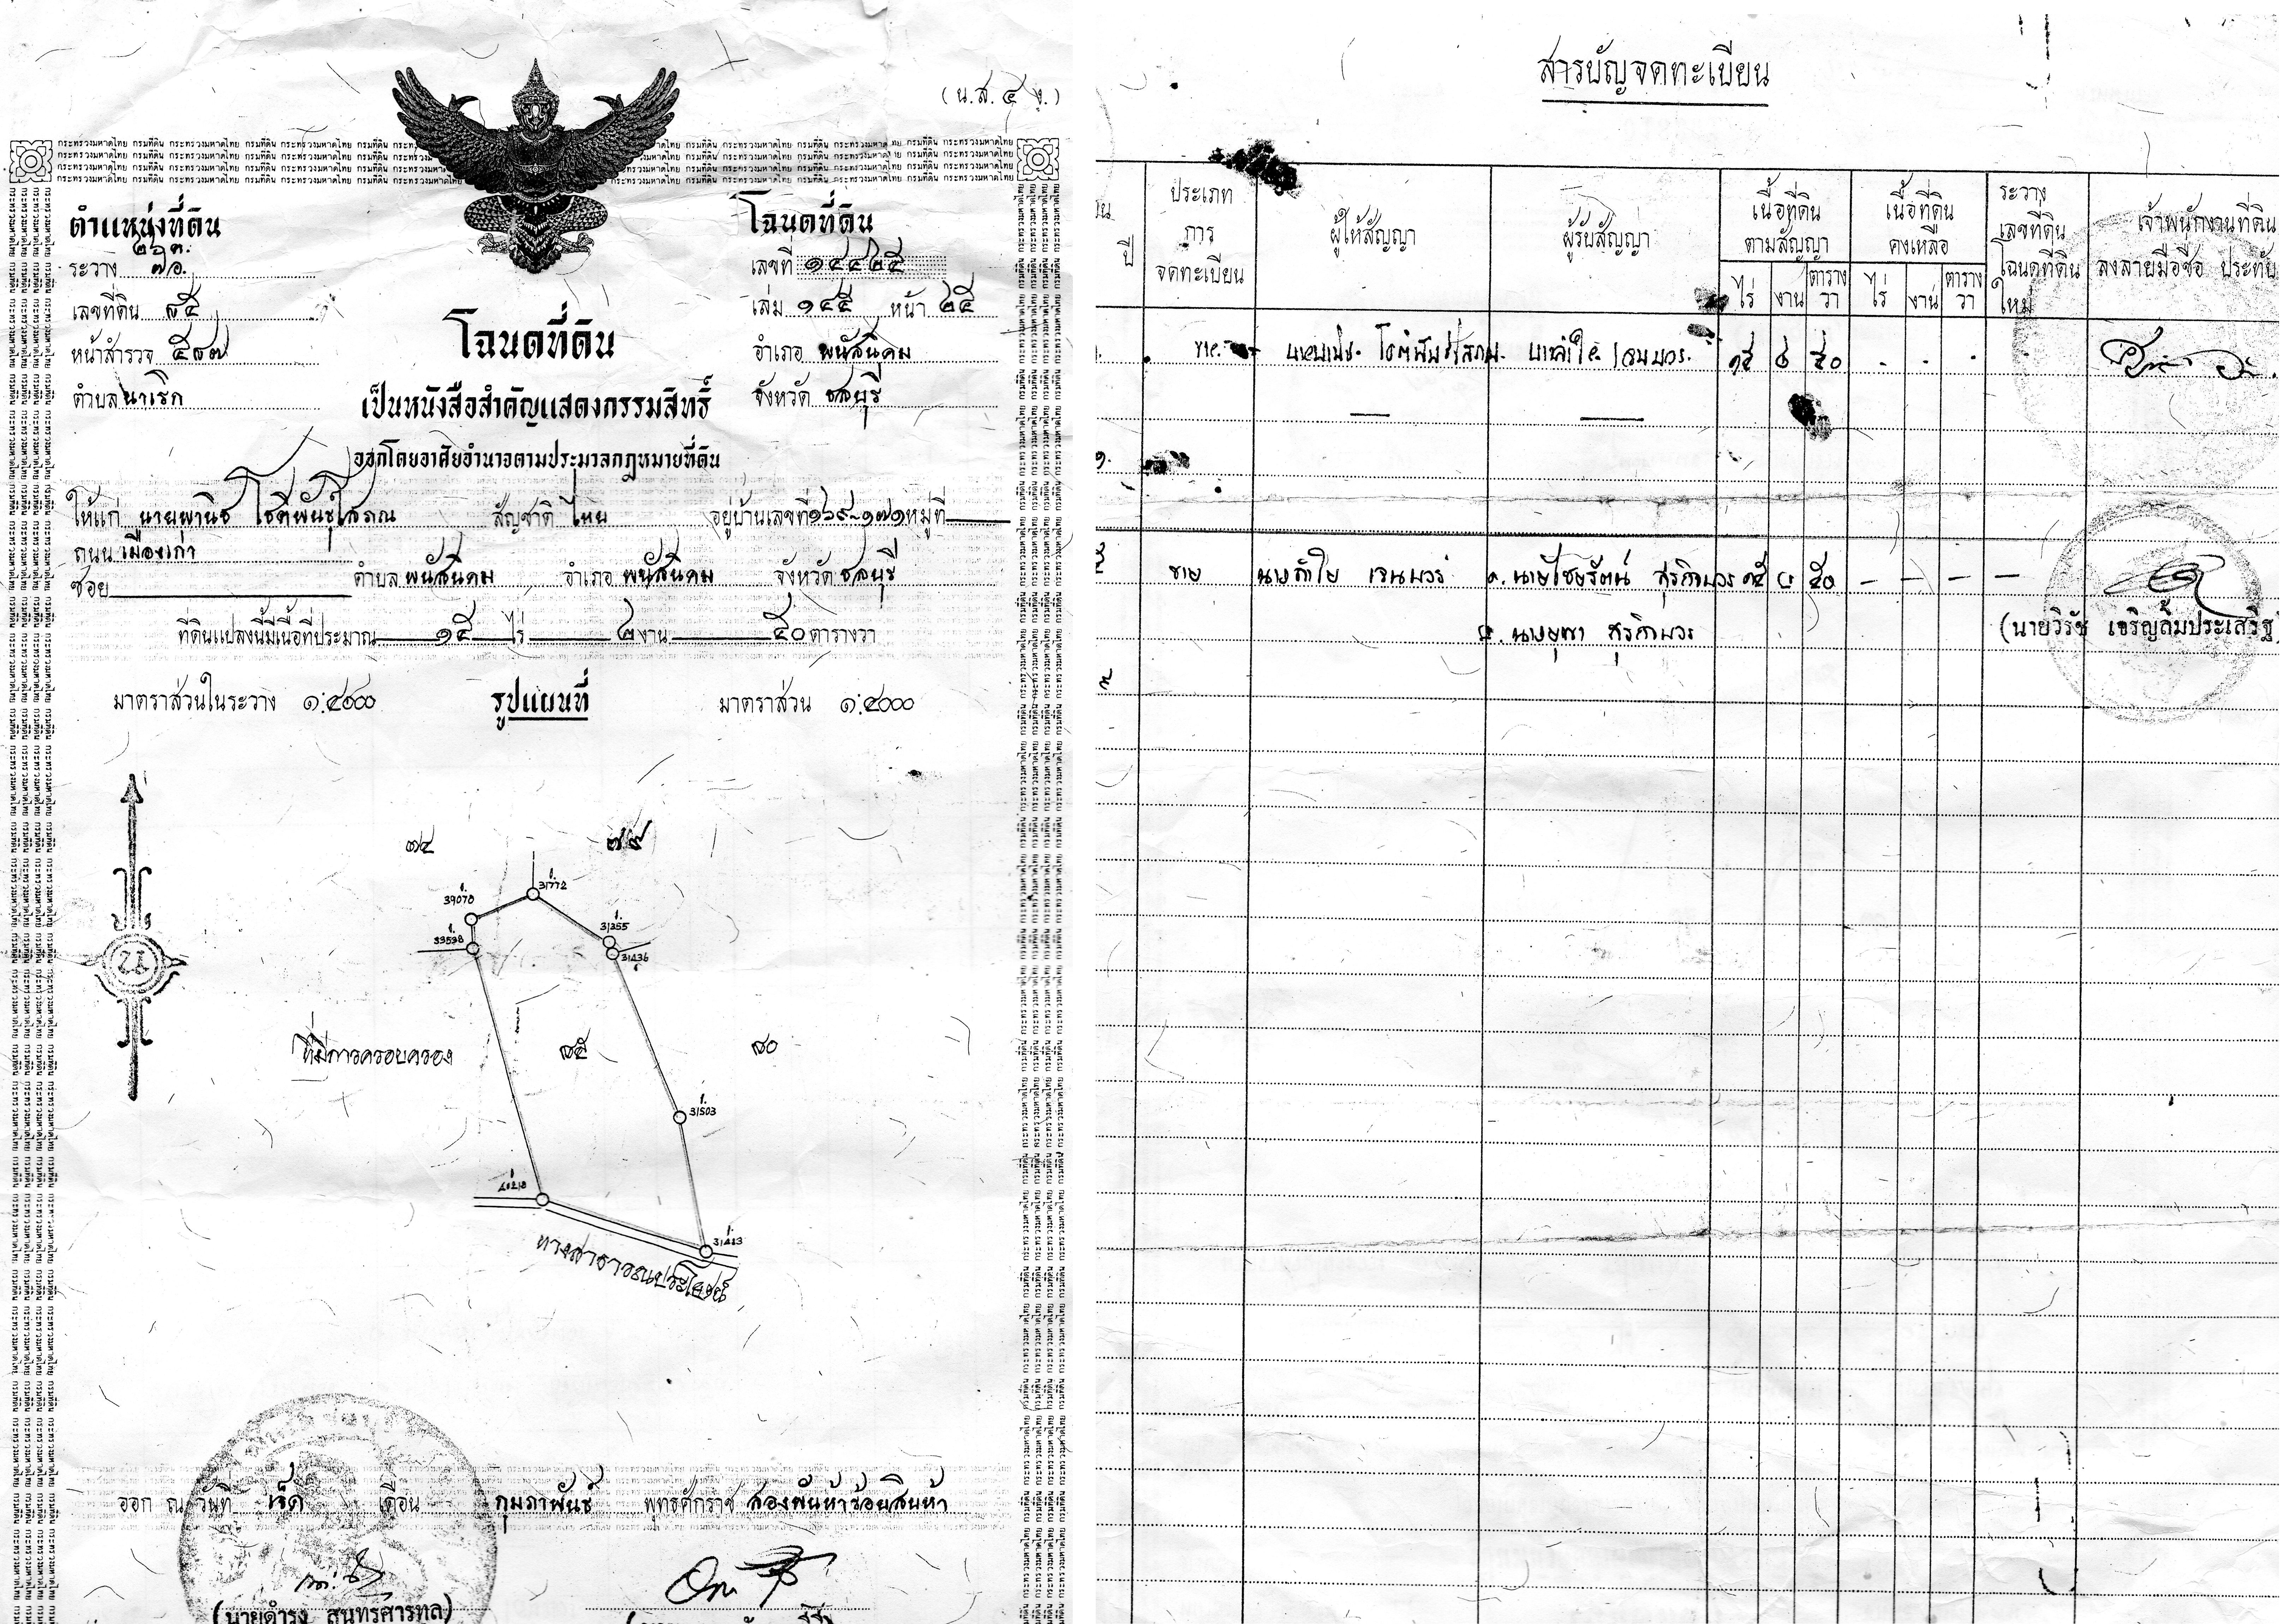 (น.ส. ๔ ง.)
ตำแหน่งที่ดิน
ระวาง
เลขที่ดิน ๗๕
หน้าสำรวจ ๕๗๗
ตำบล นาเริก
โฉนดที่ดิน
เลขที่ ๑๔๔๒๕
เล่ม ๑๔๕ หน้า ๒๕
อำเภอ พนัสนิคม
จังหวัด ชลบุรี
โฉนดที่ดิน
เป็นหนังสือสำคัญแสดงกรรมสิทธิ์
ออกโดยอาศัยอำนาจตามประมวลกฎหมายที่ดิน
ให้แก่ นายพานิช โชติพันธุ์โสภณ สัญชาติ ไทย อยู่บ้านเลขที่ ๑๖๙-๑๗๑ หมู่ที่
ถนน เมืองเก่า
ซอย ตำบล พนัสนิคม อำเภอ พนัสนิคม จังหวัด ชลบุรี
ที่ดินแปลงนี้มีเนื้อที่ประมาณ ๑๕ ไร่ ๒ งาน ๕๐ ตารางวา
มาตราส่วนในระวาง ๑:๔๐๐๐ รูปแผนที่ มาตราส่วน ๑:๔๐๐๐
๗๔ ๗๙
31772
39070
31355
33538
31436
ที่มีการครอบครอง ๗๕ ๘๐
31503
31443
ทางสาธารณประโยชน์
ออก ณ วันที่ เจ็ด เดือน กุมภาพันธ์ พุทธศักราช สองพันห้าร้อยสิบห้า
(นายดำรง สุนทรศารทูล)
สารบัญจดทะเบียน
ปี
ประเภทการจดทะเบียน
ผู้ให้สัญญา
ผู้รับสัญญา
เนื้อที่ดินตามสัญญา
ไร่ งาน ตารางวา
เนื้อที่ดินคงเหลือ
ไร่ งาน ตารางวา
ระวาง เลขที่ดิน โฉนดที่ดิน ใหม่
เจ้าพนักงานที่ดิน
ลงลายมือชื่อ ประทับ
ขาย นายพานิช โชติพันธุ์โสภณ ๑๕ ๒ ๕๐ - - -
ขาย นางลำใย เจนบวร ๑. นายไชยรัตน์ สุรกิจบวร ๑๕ ๒ ๕๐ - - - -
๒. นางยุพา สุรกิจบวร
(นายวิรัช เจริญลิ้มประเสริฐ)